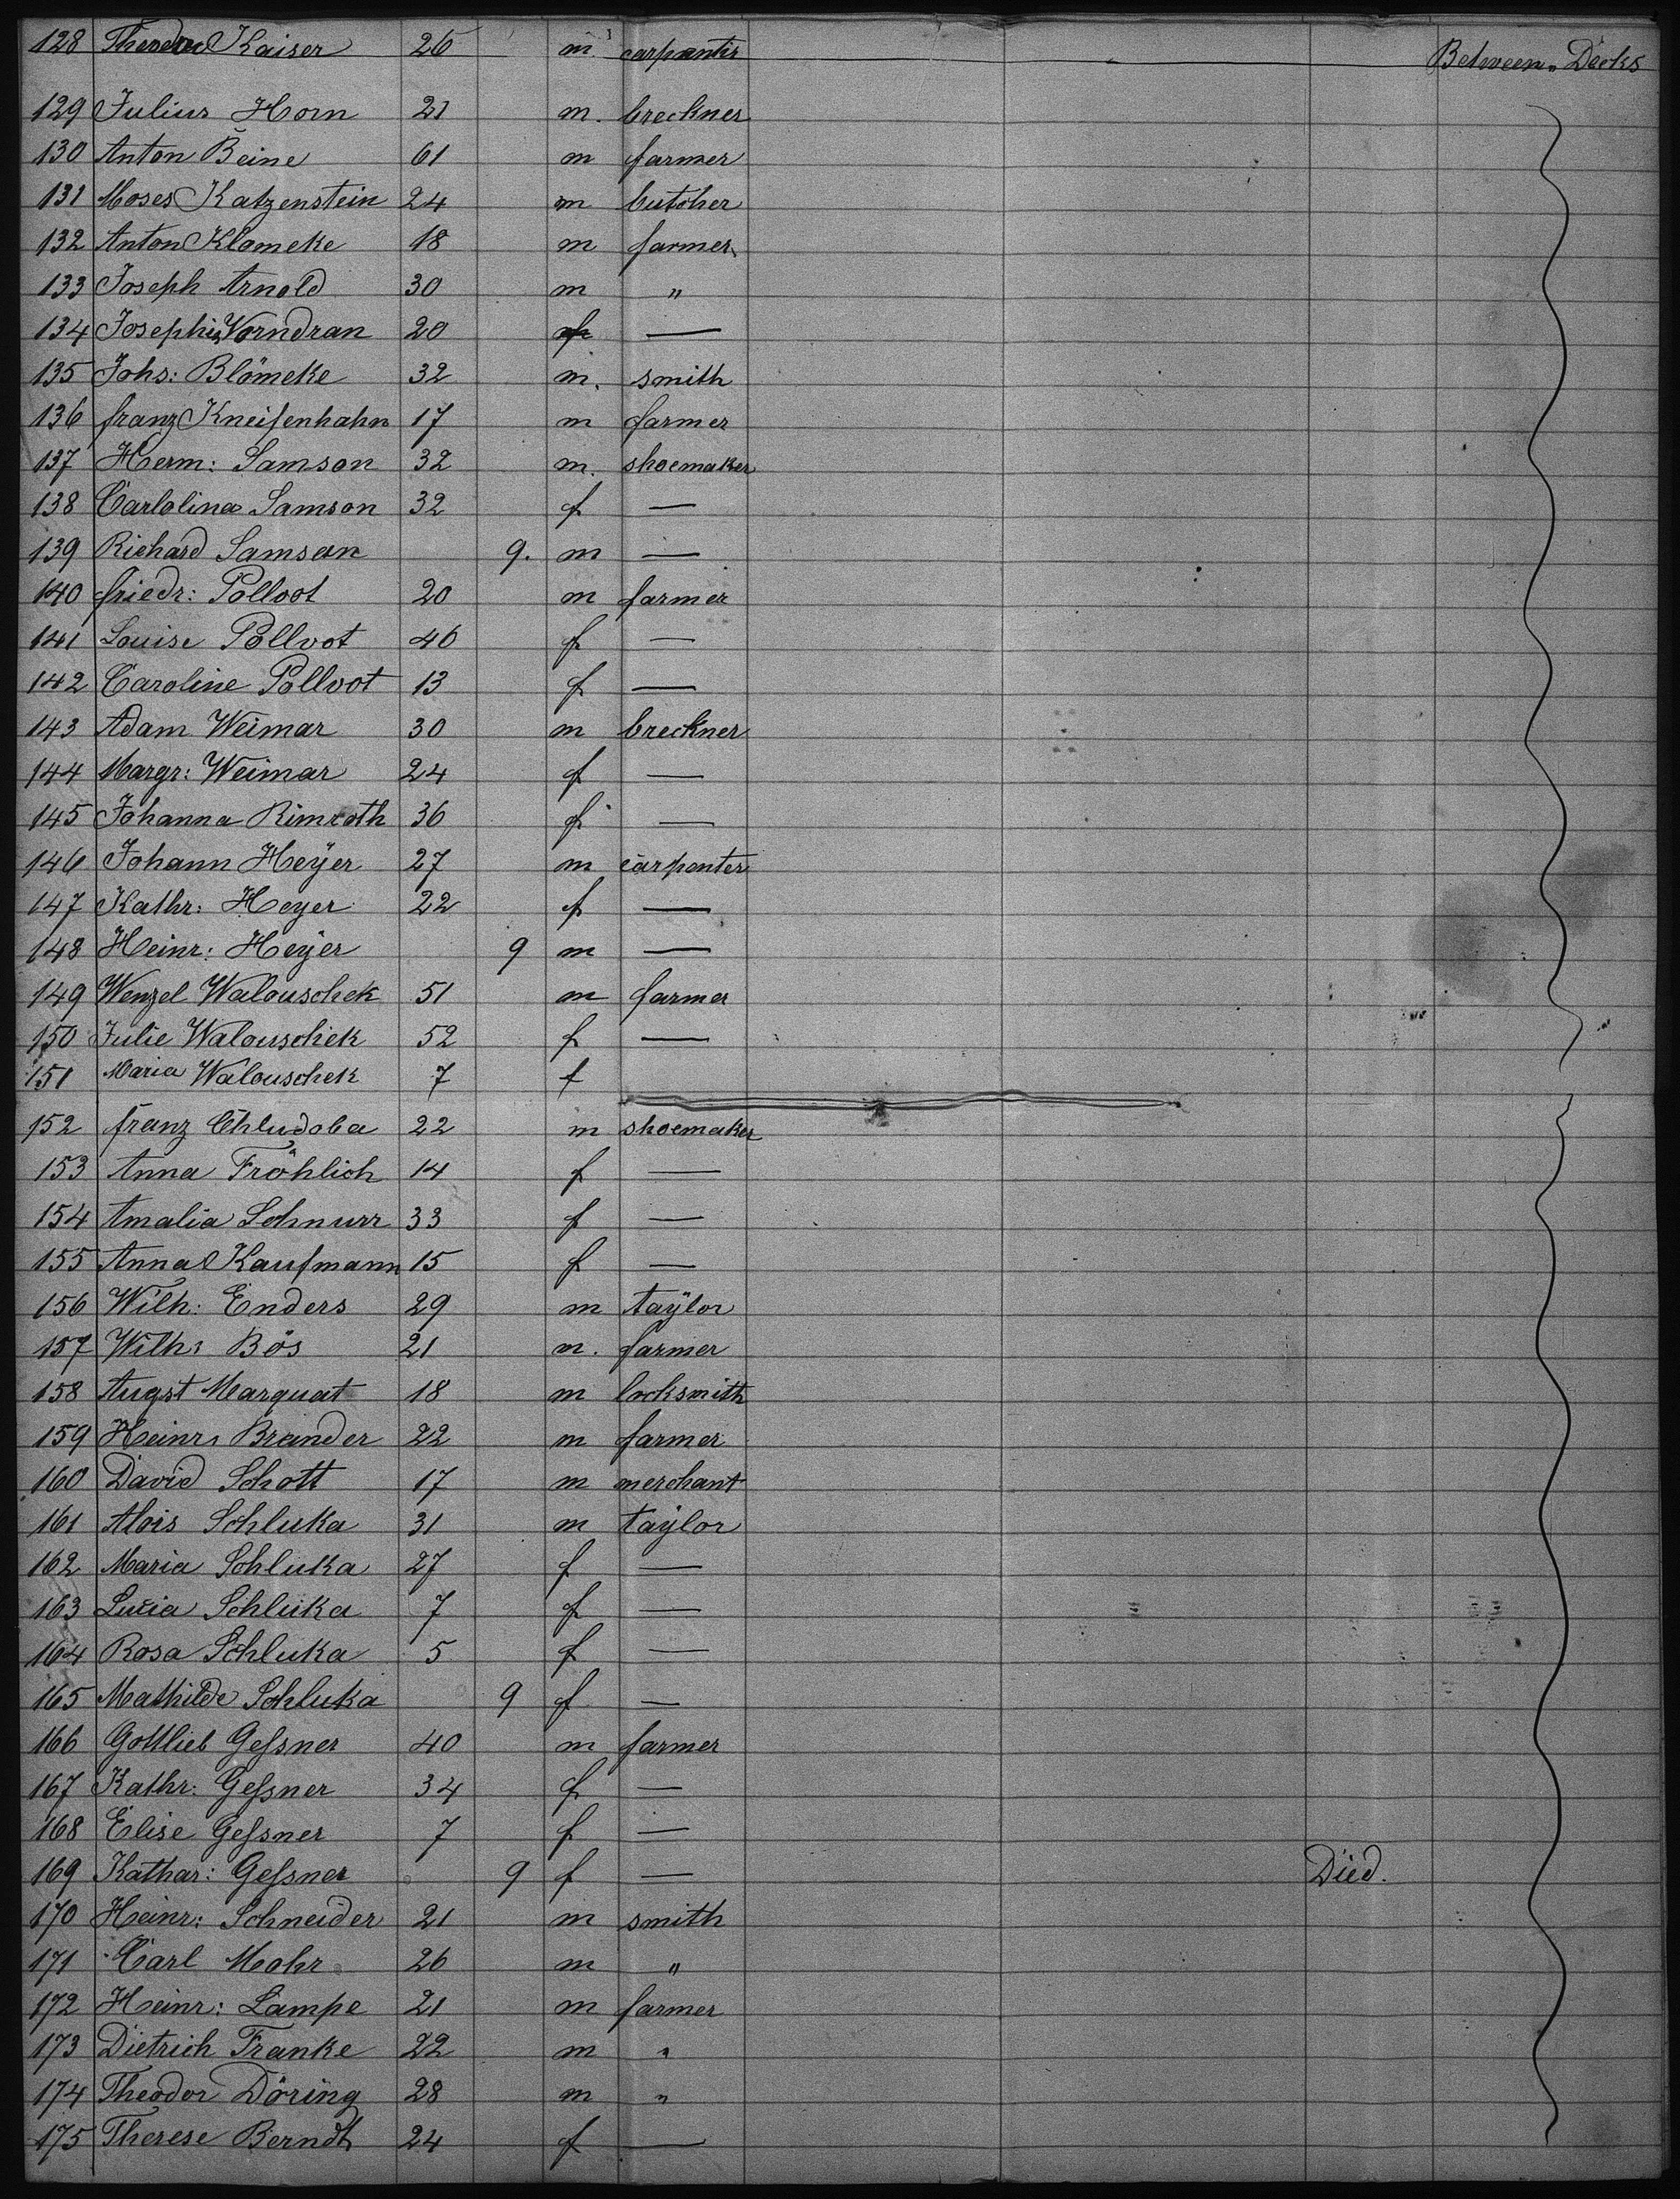 128 Theodor Kaiser 26 m. carpenter Between Decks
129 Julius Horn 21 m. breckner
130 Anton Beine 61 m farmer
131 Moses Katzenstein 24 m butcher
132 Anton Klomeke 18 m farmer
133 Joseph Arnold 30 m "
134 Vorndran 20 f —
135 Johs: Blömeke 32 m. smith
136 franz Kneisenhahn 17 m farmer
137 Herm: Samson 32 m. shoemaker
138 Carlolina Samson 32 f —
139 Richard Samson 9. m —
140 friedr: Pollvot 20 m farmer
141 Louise Pollvot 46 f —
142 Caroline Pollvot 13 f —
143 Adam Weimar 30 m breckner
144 Margr: Weimar 24 f —
145 Johanna Rimroth 36 f —
146 Johann Heÿer 27 m carpenter
147 Kathr: Heyer 22 f —
148 Heinr: Heÿer 9 m —
149 Wenzel Walouschek 51 m farmer
150 Julie Walouschek 52 f —
151 Maria Walouschek 7 f
152 franz Chludoba 22 m shoemaker
153 Anna Fröhlich 14 f —
154 Amalia Schnurr 33 f —
155 Anna Kaufmann 15 f —
156 Wilh: Enders 29 m taÿlor
157 Wilh: Bös 21 m. farmer
158 Augst Marquat 18 m locksmith
159 Heinr: Brander 22 m farmer
160 David Schott 17 m merchant
161 Alois Schluka 31 m taÿlor
162 Maria Schluka 27 f —
163 Lucia Schluka 7 f —
164 Rosa Schluka 5 f —
165 Mathilde Schluka 9 f —
166 Gottlieb Geſsner 40 m farmer
167 Kathr: Geſsner 34 f —
168 Elise Geſsner 7 f —
169 Kathar: Geſsner 9 f — Died.
170 Heinr: Schneider 21 m smith
171 Carl Mohr 26 m "
172 Heinr: Lampe 21 m farmer
173 Dietrich Franke 22 m "
174 Theodor Döring 28 m "
175 Therese Berndt 24 f —